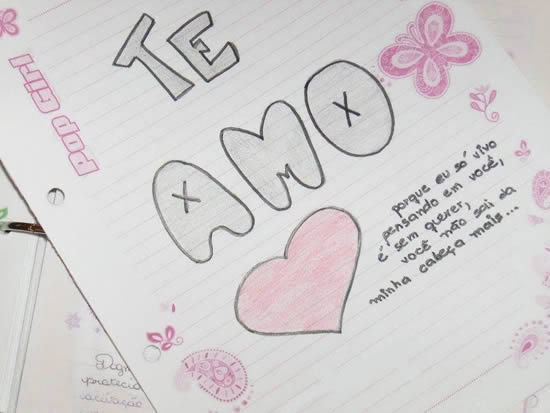 TE
AMO
Pop Girl
porque eu só vivo
pensando em você,
é sem querer,
você não sai da
minha cabeça mais...